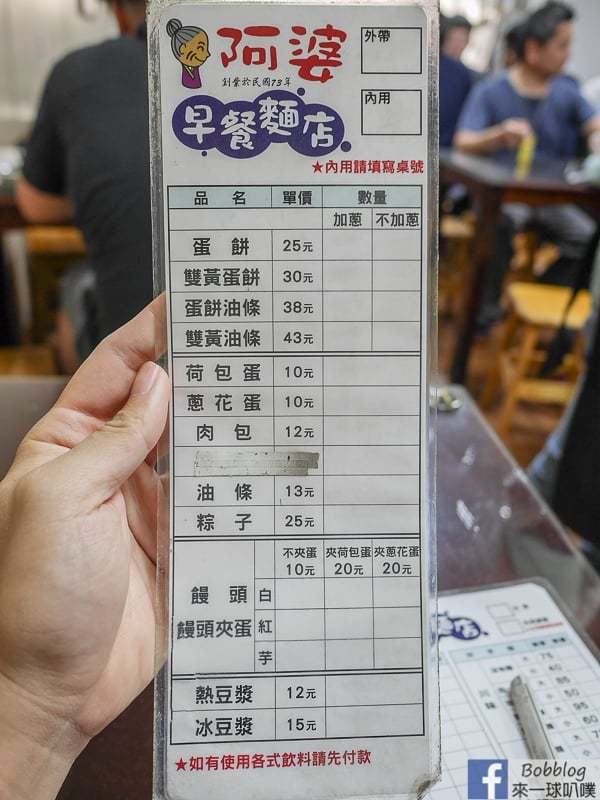 阿婆
創業於民國73年
早餐麵店
外帶
內用
★內用請填寫桌號
品名 單價 數量
加蔥 不加蔥
蛋餅 25元
雙黃蛋餅 30元
蛋餅油條 38元
雙黃油條 43元
荷包蛋 10元
蔥花蛋 10元
肉包 12元
油條 13元
粽子 25元
不夾蛋 夾荷包蛋 夾蔥花蛋
10元 20元 20元
饅頭 白
饅頭夾蛋 紅
芋
熱豆漿 12元
冰豆漿 15元
★如有使用各式飲料請先付款
店
Bobblog
來一球叭噗